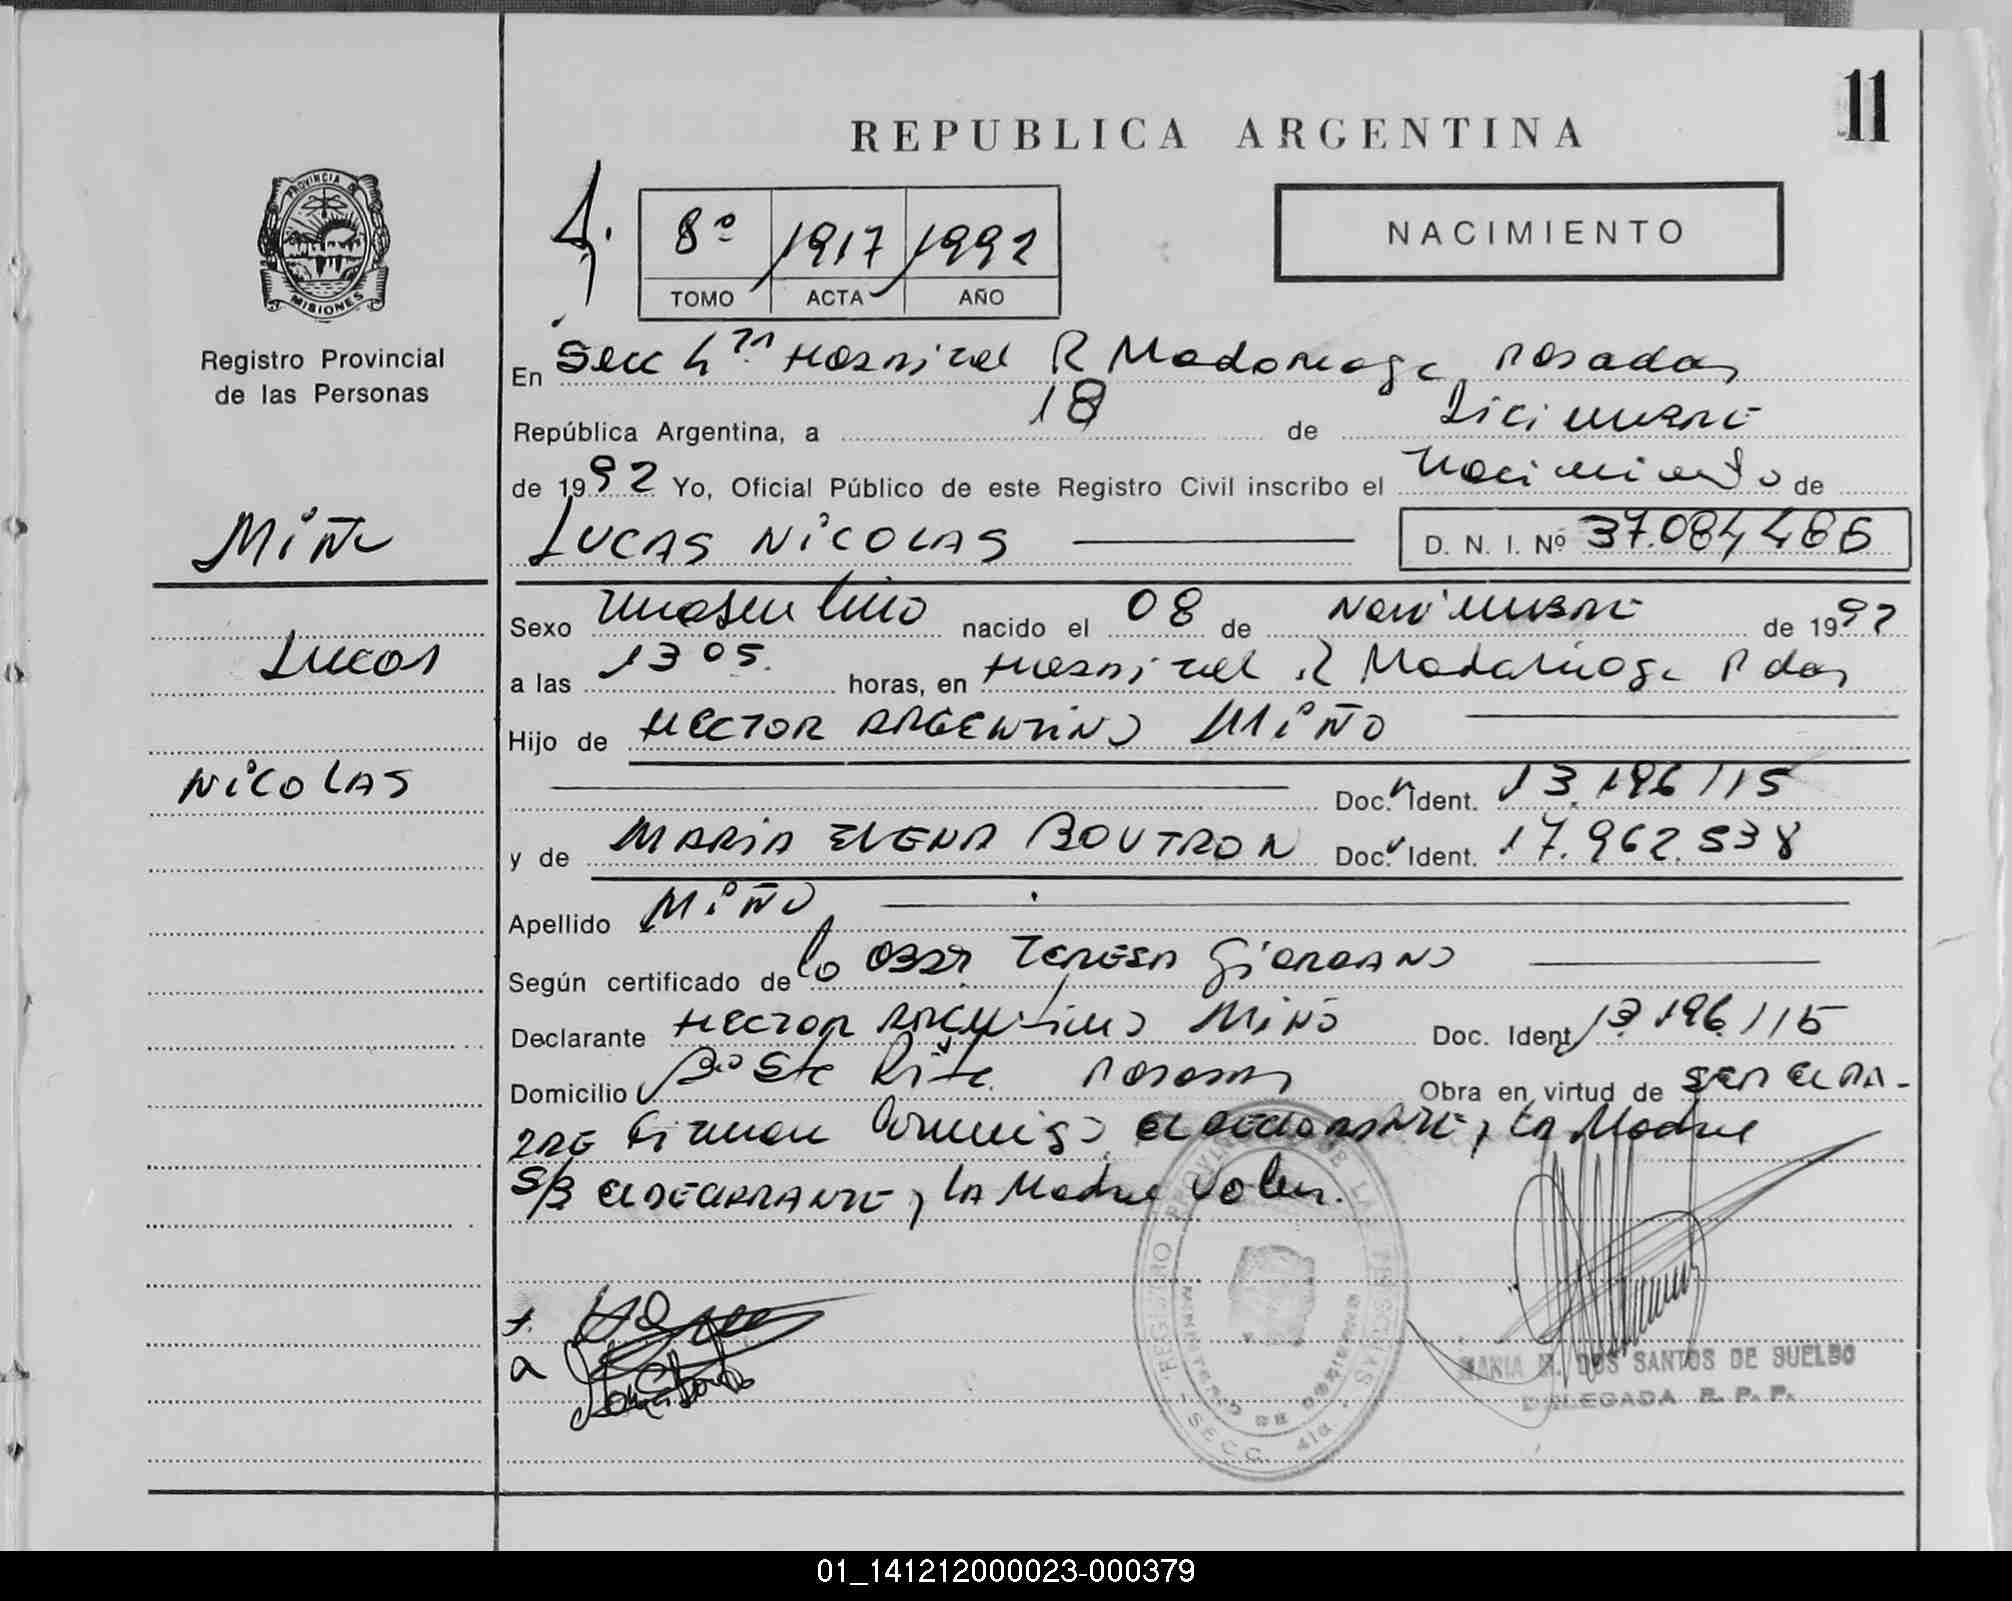 11
REPUBLICA ARGENTINA
PROVINCIA DE
MISIONES
Registro Provincial
de las Personas
8º 1917 1992
TOMO ACTA AÑO
NACIMIENTO
En Secc 4ta Hospital R Madariaga Posadas
República Argentina, a 18 de Diciembre
de 1992 Yo, Oficial Público de este Registro Civil inscribo el Nacimiento de
LUCAS NICOLAS D. N. I. Nº 37.084,486
Miño
Lucas
NICOLAS
Sexo Masculino nacido el 08 de Noviembre de 1992
a las 13 05. horas, en Hospital R Madariaga Pdas
Hijo de HECTOR ARGENTINO MIÑO
Doc. Ident. 13.196 115
y de MARIA ELENA BOUTRON Doc. Ident. 17.962.538
Apellido MIÑO
Según certificado de la Obst TERESA GIORDANO
Declarante HECTOR Argentino MIÑO Doc. Ident 13.196 115
Domicilio Bº Sta Rita Posadas Obra en virtud de SER EL PA-
DRE Firman Conmigo EL DECLARANTE, LA Madre
S/B EL DECLARANTE, LA Madre Valen.
REGISTRO PROVINCIAL DE LAS PERSONAS
MINISTERIO DE GOBIERNO
SECC. 4ta
MARIA M. DOS SANTOS DE SUELDO
DELEGADA R. P. P.
01_141212000023-000379